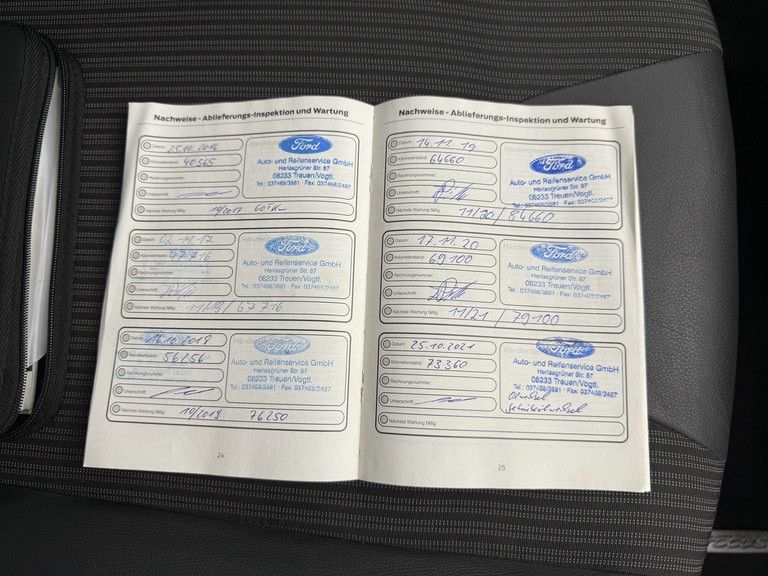 Nachweise - Ablieferungs-Inspektion und Wartung
Datum: 25.10.2016
Kilometerstand: 40565
Rechnungsnummer:
Unterschrift:
Nächste Wartung fällig: 10/2017 60TK
Ford
Auto- und Reifenservice GmbH
Herlasgrüner Str. 87
08233 Treuen/Vogtl.
Tel.: 037468/3881 · Fax: 037468/2487
Datum: 02.11.17
Kilometerstand: 47716
Rechnungsnummer:
Unterschrift:
Nächste Wartung fällig: 11/18 / 67716
Ford
Auto- und Reifenservice GmbH
Herlasgrüner Str. 87
08233 Treuen/Vogtl.
Tel.: 037468/3881 · Fax: 037468/2487
Datum: 16.10.2018
Kilometerstand: 56256
Rechnungsnummer:
Unterschrift:
Nächste Wartung fällig: 10/2019 76250
Ford
Auto- und Reifenservice GmbH
Herlasgrüner Str. 87
08233 Treuen/Vogtl.
Tel.: 037468/3881 · Fax: 037468/2487
24
Nachweise - Ablieferungs-Inspektion und Wartung
Datum: 14.11.19
Kilometerstand: 64660
Rechnungsnummer:
Unterschrift:
Nächste Wartung fällig: 11/20 / 84660
Ford
Auto- und Reifenservice GmbH
Herlasgrüner Str. 87
08233 Treuen/Vogtl.
Tel.: 037468/3881 · Fax: 037468/2487
Datum: 17.11.20
Kilometerstand: 69100
Rechnungsnummer:
Unterschrift:
Nächste Wartung fällig: 11/21 / 79100
Ford
Auto- und Reifenservice GmbH
Herlasgrüner Str. 87
08233 Treuen/Vogtl.
Tel.: 037468/3881 · Fax: 037468/2487
Datum: 25.10.2021
Kilometerstand: 73360
Rechnungsnummer:
Unterschrift:
Nächste Wartung fällig:
Ford
Auto- und Reifenservice GmbH
Herlasgrüner Str. 87
08233 Treuen/Vogtl.
Tel.: 037468/3881 · Fax: 037468/2487
Ölwechsel
25